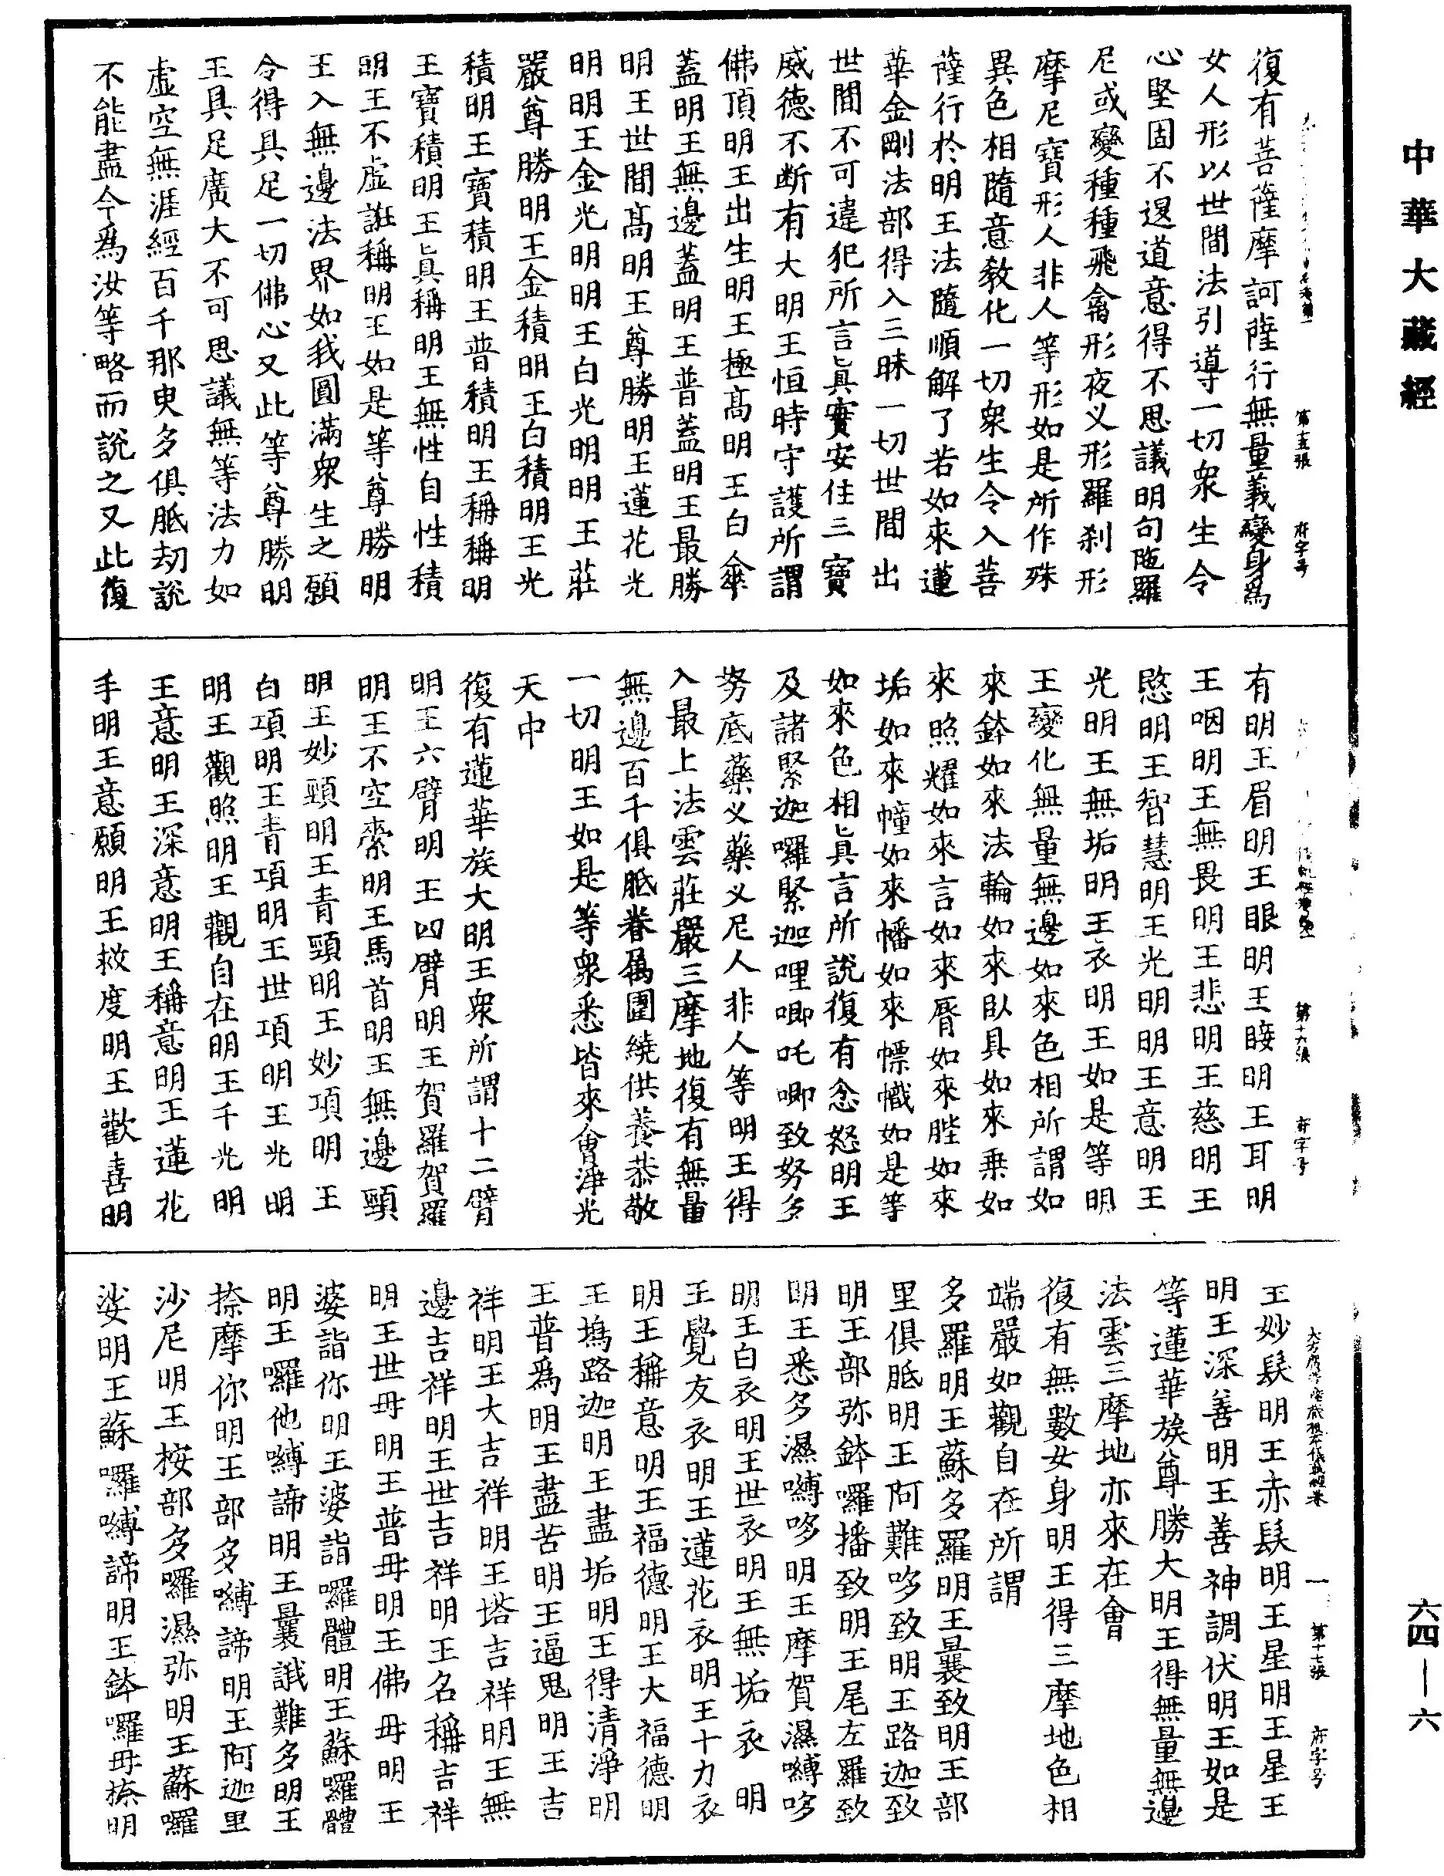 中華大藏經
六四—六
第十五張
府字号
復有菩薩摩訶薩行無量義變身為
女人形以世間法引導一切衆生令
心堅固不退道意得不思議明句陁羅
尼或變種種飛禽形夜义形羅刹形
摩尼寶形人非人等形如是所作殊
異色相隨意教化一切衆生令入菩
薩行於明王法隨順解了若如來蓮
華金剛法部得入三昧一切世間出
世間不可違犯所言真實安住三寶
威德不断有大明王恒時守護所謂
佛頂明王出生明王極髙明王白傘
蓋明王無邊蓋明王普蓋明王最勝
明王世間髙明王尊勝明王蓮花光
明明王金光明明王白光明明王莊
嚴尊勝明王金積明王白積明王光
積明王寶積明王普積明王稱稱明
王寶積明王真稱明王無性自性積
明王不虛誑稱明王如是等尊勝明
王入無邊法界如我圓滿衆生之願
令得具足一切佛心又此等尊勝明
王具足廣大不可思議無等法力如
虛空無涯經百千那臾多俱胝劫說
不能盡今為汝等略而說之又此復
第十六張
府字号
有明王眉明王眼明王睫明王耳明
王咽明王無畏明王悲明王慈明王
愍明王智慧明王光明明王意明王
光明王無垢明王衣明王如是等明
王變化無量無邊如來色相所謂如
來鉢如來法輪如來卧具如來乗如
來照耀如來言如來脣如來䏶如來
垢如來幢如來幡如來幖幟如是等
如來色相真言所說復有忿怒明王
及諸緊迦囉緊迦哩唧吒唧致努多
努底藥义藥义尼人非人等明王得
入最上法雲莊嚴三摩地復有無量
無邊百千俱胝眷属圍繞供養恭敬
一切明王如是等衆悉皆來會淨光
天中
復有蓮華族大明王衆所謂十二臂
明王六臂明王四臂明王賀羅賀羅
明王不空羂明王馬首明王無邊頸
明王妙頸明王青頸明王妙項明王
白項明王青項明王世項明王光明
明王觀照明王觀自在明王千光明
王意明王深意明王稱意明王蓮花
手明王意願明王救度明王歡喜明
第十七張
府字号
王妙髮明王赤髮明王星明王星王
明王深善明王善神調伏明王如是
等蓮華族尊勝大明王得無量無邊
法雲三摩地亦來在會
復有無數女身明王得三摩地色相
端嚴如觀自在所謂
多羅明王蘇多羅明王曩致明王部
里俱胝明王阿難哆致明王路迦致
明王部弥鉢囉播致明王尾左羅致
明王悉多濕嚩哆明王摩賀濕嚩哆
明王白衣明王世衣明王無垢衣明
王覺友衣明王蓮花衣明王十力衣
明王稱意明王福德明王大福德明
王塢路迦明王盡垢明王得清淨明
王普為明王盡苦明王逼鬼明王吉
祥明王大吉祥明王塔吉祥明王無
邊吉祥明王世吉祥明王名稱吉祥
明王世毋明王普毋明王佛毋明王
婆詣你明王婆詣囉體明王蘇囉體
明王囉他嚩諦明王曩誐難多明王
捺摩你明王部多嚩諦明王阿迦里
沙尼明王桉部多囉濕弥明王蘇囉
娑明王蘇囉嚩諦明王鉢囉毋捺明